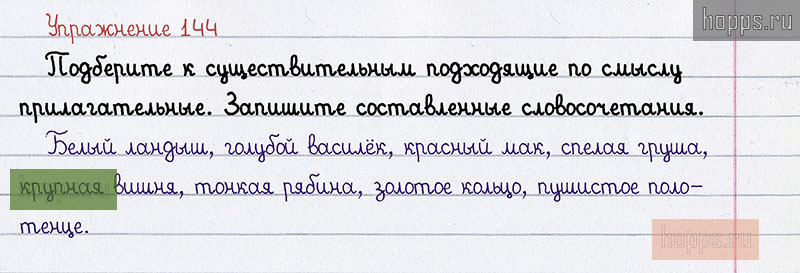 hopps.ru
Упражнение 144
Подберите к существительным подходящие по смыслу
прилагательные. Запишите составленные словосочетания.
Белый ландыш, голубой василёк, красный мак, спелая груша,
крупная вишня, тонкая рябина, золотое кольцо, пушистое поло-
тенце.
hopps.ru